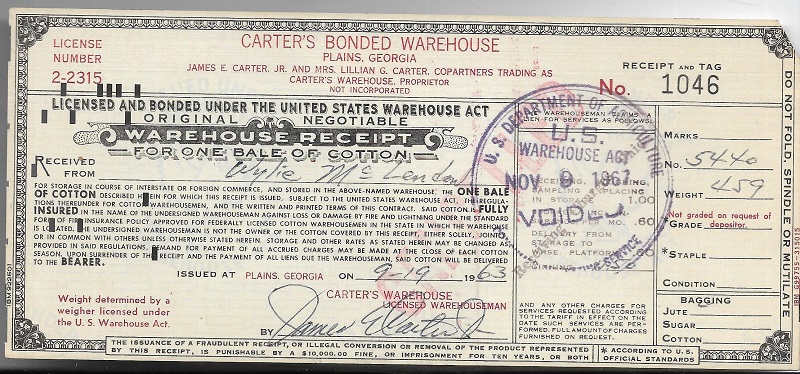 LICENSE
NUMBER
2-2315
CARTER'S BONDED WAREHOUSE
PLAINS, GEORGIA
JAMES E. CARTER, JR. AND MRS. LILLIAN G. CARTER, COPARTNERS TRADING AS
CARTER'S WAREHOUSE, PROPRIETOR
NOT INCORPORATED
RECEIPT AND TAG
No. 1046
LICENSED AND BONDED UNDER THE UNITED STATES WAREHOUSE ACT
ORIGINAL NEGOTIABLE
WAREHOUSE RECEIPT
FOR ONE BALE OF COTTON
RECEIVED FROM Wylie McLendon
FOR STORAGE IN COURSE OF INTERSTATE OR FOREIGN COMMERCE, AND STORED IN THE ABOVE-NAMED WAREHOUSE, THE ONE BALE
OF COTTON DESCRIBED HEREIN FOR WHICH THIS RECEIPT IS ISSUED, SUBJECT TO THE UNITED STATES WAREHOUSE ACT, THE REGULA-
TIONS THEREUNDER FOR COTTON WAREHOUSEMEN, AND THE WRITTEN AND PRINTED TERMS OF THIS CONTRACT. SAID COTTON IS FULLY
INSURED IN THE NAME OF THE UNDERSIGNED WAREHOUSEMAN AGAINST LOSS OR DAMAGE BY FIRE AND LIGHTNING UNDER THE STANDARD
FORM OF FIRE INSURANCE POLICY APPROVED FOR FEDERALLY LICENSED COTTON WAREHOUSEMEN IN THE STATE IN WHICH THE WAREHOUSE
IS LOCATED. THE UNDERSIGNED WAREHOUSEMAN IS NOT THE OWNER OF THE COTTON COVERED BY THIS RECEIPT, EITHER SOLELY, JOINTLY
OR IN COMMON WITH OTHERS UNLESS OTHERWISE STATED HEREIN. STORAGE AND OTHER RATES AS STATED HEREIN MAY BE CHANGED AS
PROVIDED IN SAID REGULATIONS. DEMAND FOR PAYMENT OF ALL ACCRUED CHARGES MAY BE MADE AT THE CLOSE OF EACH COTTON
SEASON, UPON SURRENDER OF THIS RECEIPT AND THE PAYMENT OF ALL LIENS DUE THE WAREHOUSEMAN, SAID COTTON WILL BE DELIVERED
TO THE BEARER.
ISSUED AT PLAINS, GEORGIA ON 9-19 1963
Weight determined by a
weigher licensed under
the U. S. Warehouse Act.
CARTER'S WAREHOUSE
LICENSED WAREHOUSEMAN
BY James E Carter Jr
THE ISSUANCE OF A FRAUDULENT RECEIPT, OR ILLEGAL CONVERSION OR REMOVAL OF THE PRODUCT REPRESENTED
BY THIS RECEIPT, IS PUNISHABLE BY A $10,000.00 FINE, OR IMPRISONMENT FOR TEN YEARS, OR BOTH
WAREHOUSEMAN CLAIMS A
LIEN FOR SERVICES AS FOLLOWS.
U. S. DEPARTMENT OF AGRICULTURE
U. S.
WAREHOUSE ACT
NOV 9 1967
VOIDED
SERVICE
RECEIVING, WEIGHING,
SAMPLING PLACING
IN STORAGE 1.00
MO. .60
DELIVERY FROM
STORAGE TO
BASE. PLATFORM
AND ANY OTHER CHARGES FOR
SERVICES REQUESTED ACCORDING
TO THE TARIFF IN EFFECT ON THE
DATE SUCH SERVICES ARE PER-
FORMED. FULL AMOUNT OF CHARGES
FURNISHED ON REQUEST.
MARKS
No. 5440
WEIGHT 459
Not graded on request of
GRADE depositor.
*STAPLE
CONDITION
BAGGING
JUTE
SUGAR
COTTON
* ACCORDING TO U. S.
OFFICIAL STANDARDS
DO NOT FOLD, SPINDLE OR MUTILATE